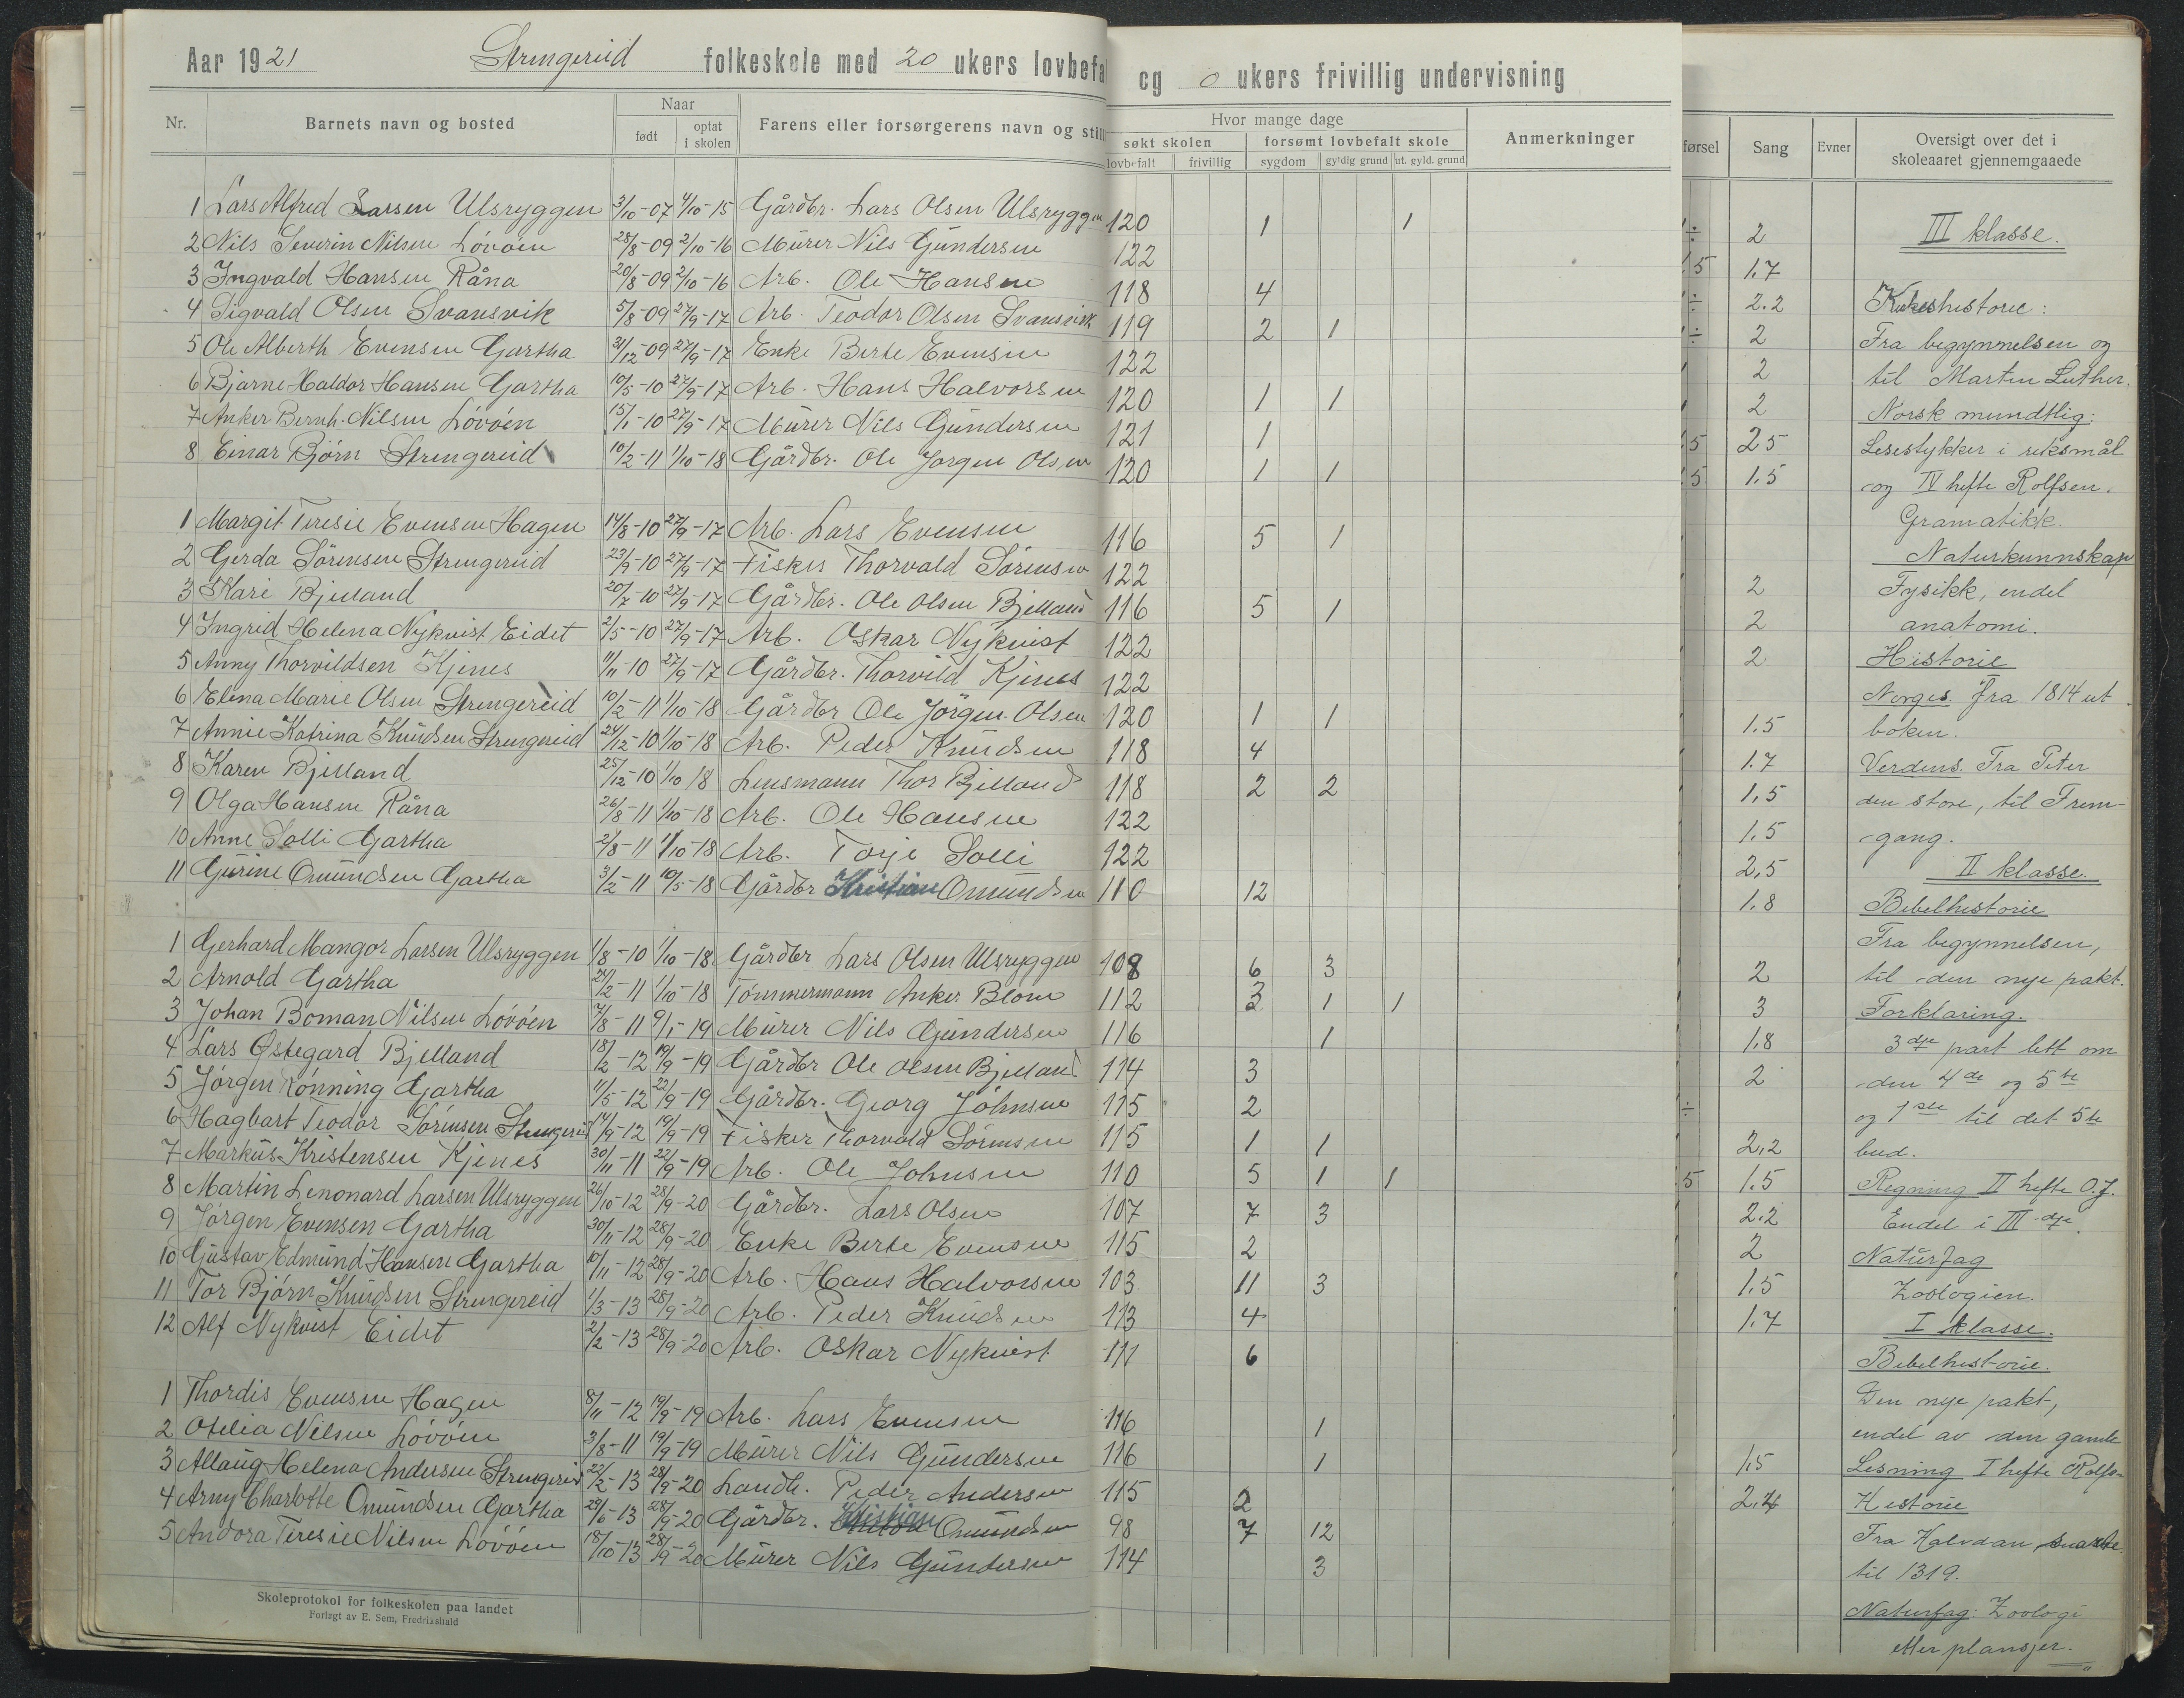 Aar 1921 Strengereid folkeskole med 20 ukers lovbefa og 0 ukers frivillig undervisning
Nr. Barnets navn og bosted Naar født optat i skolen Farens eller forsørgerens navn og still
Hvor mange dage Anmerkninger
søkt skolen forsømt lovbefalt skole
lovbefalt frivillig sygdom gyldig grund ut. gyld. grund
1 Lars Alfred Larsen Ulsryggen 3/10-07 4/10-15 Gårdbr. Lars Olsen Ulsryggen 120 1 1
2 Nils Severin Nilsen Lövöen 28/8-09 2/10-16 Mürer Nils Gündersen 122
3 Ingvald Hansen Råna 20/8-09 2/10-16 Arb. Ole Hansen 118 4
4 Sigvald Olsen Svansvik 5/8-09 27/9-17 Arb. Teodor Olsen Svansvik 119 2 1
5 Ole Alberth Evensen Gartha 31/12-09 27/9-17 Enke Berte Evensen 122
6 Bjarne Haldor Hansen Gartha 10/5-10 27/9-17 Arb. Hans Halvorsen 120 1 1
7 Anker Bernh. Nilsen Lövöen 15/1-10 27/9-17 Mürer Nils Gündersen 121 1
8 Einar Björn Strengereid 10/2-11 1/10-18 Gårdbr. Ole Jorgen Olsen 120 1 1
1 Margit Teresie Evensen Hagen 14/8-10 27/9-17 Arb. Lars Evensen 116 5 1
2 Gerda Sörensen Strengereid 23/9-10 27/9-17 Fisker Thorvald Sörensen 122
3 Kari Bjelland 20/7-10 27/9-17 Gårdbr. Ole Olsen Bjelland 116 5 1
4 Ingrid Helena Nykvist Eidet 2/5-10 27/9-17 Arb. Oskar Nykvist 122
5 Anny Thorvildsen Kjenes 11/11-10 27/9-17 Gårdbr. Thorvild Kjenes 122
6 Elena Marie Olsen Strengereid 10/2-11 1/10-18 Gårdbr Ole Jörgen Olsen 120 1 1
7 Annie Katrina Knüdsen Strengereid 24/12-10 1/10-18 Arb. Peder Knüdsen 118 4
8 Karen Bjelland 25/12-10 1/10 18 Lensmann Thor Bjelland 118 2 2
9 Olga Hansen Råna 26/8-11 1/10-18 Arb. Ole Hansen 122
10 Anne Solli Gartha 2/8-11 1/10-18 Arb. Torje Solli 122
11 Gürine Omündsen Gartha 3/2-11 10/5-18 Gårdbr Kristian Omündsen 110 12
1 Gerhard Mangor Larsen Ulsryggen 1/8-10 1/10-18 Gårdbr Lars Olsen Ulsryggen 108 6 3
2 Arnold Gartha 24/2-11 1/10-18 Tömmermann Anker Blom 112 3 1 1
3 Johan Boman Nilsen Lövöen 7/8-11 9/1-19 Mürer Nils Gündersen 116 1
4 Lars Østegard Bjelland 18/2-12 19/9-19 Gårdbr Ole Olsen Bjelland 114 3
5 Jörgen Rönning Gartha 11/5-12 22/9-19 Gårdbr. Georg Johnsen 115 2
6 Hagbart Teodor Sörensen Strengereid 14/9-12 19/9-19 Fisker Thorvald Sörensen 115 1 1
7 Marküs Kristensen Kjenes 30/11-11 22/9-19 Arb. Ole Johnsen 110 5 1 1
8 Martin Lenonard Larsen Ulsryggen 26/10-12 28/9-20 Gårdbr. Lars Olsen 107 7 3
9 Jörgen Evensen Gartha 30/11-12 28/9-20 Enke Berte Evensen 115 2
10 Güstav Edmünd Hansen Gartha 10/11-12 28/9-20 Arb. Hans Halvorsen 103 11 3
11 Tor Bjórn Knüdsen Strengereid 1/3-13 28/9-20 Arb. Peder Knüdsen 113 4
12 Alf Nykvist Eidet 2/2-13 28/9-20 Arb. Oskar Nykvist 111 6
1 Thordis Evensen Hagen 8/11-12 19/9-19 Arb. Lars Evensen 116 1
2 Otelia Nilsen Lövöen 3/8-11 19/9-19 Mürer Nils Gündersen 116 1
3 Allaug Helena Andersen Strengereid 22/2-13 28/9-20 Landh. Peder Andersen 115 2
4 Arny Charlotte Omündsen Gartha 29/6-13 28/9-20 Gårdbr. Kristian Omündsen 98 7 12
5 Andora Teresie Nilsen Lövöen 18/10-13 28/9-20 Mürer Nils Gündersen 114 3
Skoleprotokol for folkeskolen paa landet
Forlagt av E. Sem, Fredrikshald
førsel Sang Evner Oversigt over det i skoleaaret gjennemgaaede
÷ 2 III klasse.
5 1.7
÷ 2.2 Kirkeshistorie:
÷ 2 Fra begynnelsen og
2 til Martin Luther.
2 Norsk mundtlig:
5 25 Lesestykker i riksmål
5 1.5 og IV hefte Rolfsen.
Gramatikk.
Naturkunnskap
2 Fysikk, endel
2 anatomi.
2 Historie
Norges. Fra 1814 ut
1.5 boken.
1.7 Verdens. Fra Peter
1,5 den store, til Frem-
1.5 gang.
2,5 II klasse.
1.8 Bibelhistorie
Fra begynnelsen,
2 til den nye pakt.
3 Forklaring.
1.8 3dje part lett om
2 den 4de og 5te
÷ og 1ste til det 5te
2,2 bud.
5 1.5 Regning II hefte O.J.
2.2 Endel i III dje.
2 Naturfag
1.5 Zoologien.
1.7 I klasse.
Bibelhistorie.
Den nye pakt,
endel av den gamle
1.5 Lesning I hefte Rolfsen
2.4 Historie
Fra Halvdan svarte
til 1319.
Naturfag: Zoologi
etter plansjer.